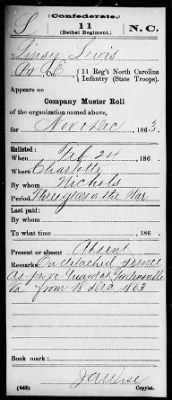 (Confederate.)
S 11 N.C.
(Bethel Regiment.)
Lewis
Co. E, 11 Reg't North Carolina
Infantry (State Troops).
Appears on
Company Muster Roll
of the organization named above,
for Nov & Dec, 1863.
Enlisted:
When Feb 24, 186
Where Charlotte
By whom Nichols
Period Three years or the War
Last paid:
By whom
To what time, 186
Present or absent Absent
Remarks: On detached service
as Guard at Gordonsville
Va from Dec 1863
Book mark:
(642) Copyist.